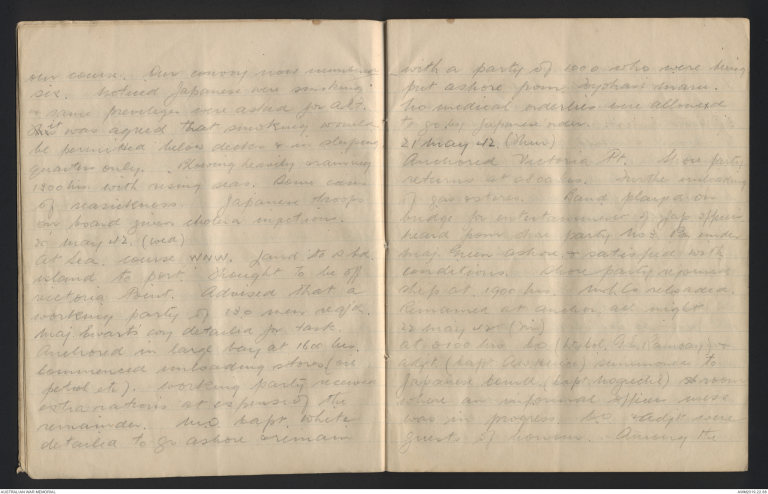 our course. Our convoy now numbering
six. Noticed Japanese were smoking
& same privileges were asked for A.I.F.
It was agreed that smoking would
be permitted below decks & in sleeping
quarters only. heavily & raining
1800 hrs with rising seas. Some cases
of seasickness. Japanese troops
on board given cholera injections.
20 May 42. (Wed)
At Sea. course WNW. Land to stbd.
island to port thought to be off
Victoria Point. Advised that a
working party of 150 men reqd.
Maj. coy detailed for task.
Anchored in large bay at 1600 hrs.
Commenced unloading stores (oil
petrol etc). Working party received
extra rations at expense of the
remainder. M.O. Capt. White
detailed to go ashore & remain
with a party of 1000 who were being
put ashore from Maru.
No medical orderlies were allowed
to go by Japanese order.
21 May 42. (Thur)
Anchored Victoria Pt. Shore party
returns at hrs. Further unloading
of gas & stores. Band played on
bridge for entertainment of Jap officers
heard from shore party No 2 Bn under
Maj. Green ashore & satisfied with
conditions. Shore party rejoined
ship at 1900 hrs. reloaded.
Remained at anchor all night
22 May 42 (Fri)
at 0100 hrs CO (Lt. Col. G.E. Ramsay) &
adjt. (Capt. ) summoned to
Japanese Comd. (Capt. ) stateroom
where an informal officers mess
was in progress. CO & Adjt were
guests of honour. Among the
AUSTRALIAN WAR MEMORIAL